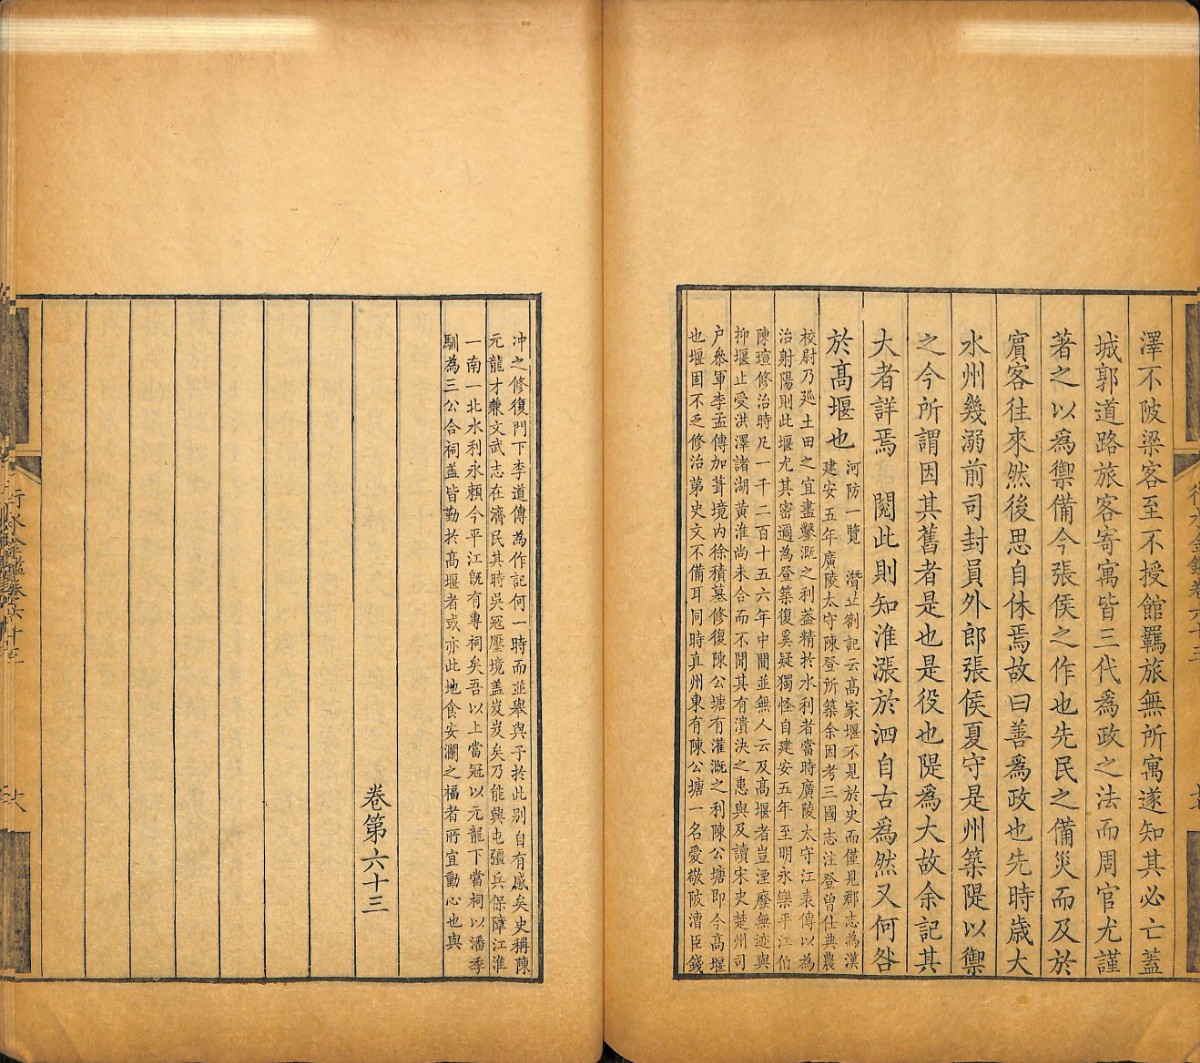 澤不陂梁客至不授館羈旅無所寓遂知其必亡蓋
城郭道路旅客寄寓皆三代爲政之法而周官尤謹
著之以爲禦備今張侯之作也先民之備災而及於
賓客往來然後思自休焉故曰善爲政也先時歲大
水州幾溺前司封員外郎張侯夏守是州築隄以禦
之今所謂因其舊者是也是役也隄爲大故余記其
大者詳焉 閱此則知淮漲於泗自古爲然又何咎
於高堰也
河防一覽 潛沚劄記云高家堰不見於史而僅見郡志為漢
建安五年廣陵太守陳登所築余因考三國志注登曾仕典農
校尉乃廵土田之宜盡鑿溉之利葢精於水利者當時廣陵太守江表傳以為
治射陽則此堰尤其密邇為登築復奚疑獨怪自建安五年至明永樂平江伯
陳瑄修治時凡一千二百十五六年中間並無人云及高堰者豈湮廢無迹與
抑堰止受洪澤諸湖黃淮尚未合而不聞其有潰決之患與及讀宋史楚州司
户叅軍李孟傳加葺境内徐積墓修復陳公塘有灌溉之利陳公塘即今高堰
也堰固不乏修治第史文不備耳同時真州東有陳公塘一名愛敬陂漕臣錢
冲之修復門下李道傳為作記何一時而並舉與予於此别自有感矣史稱陳
元龍才兼文武志在濟民其時吳冦壓境盖岌岌矣乃能興屯彊兵保障江淮
一南一北水利永賴今平江既有專祠矣吾以上當冠以元龍下當祠以潘季
馴為三公合祠盖皆勤於高堰者或亦此地食安瀾之福者所宜動心也與
卷第六十三